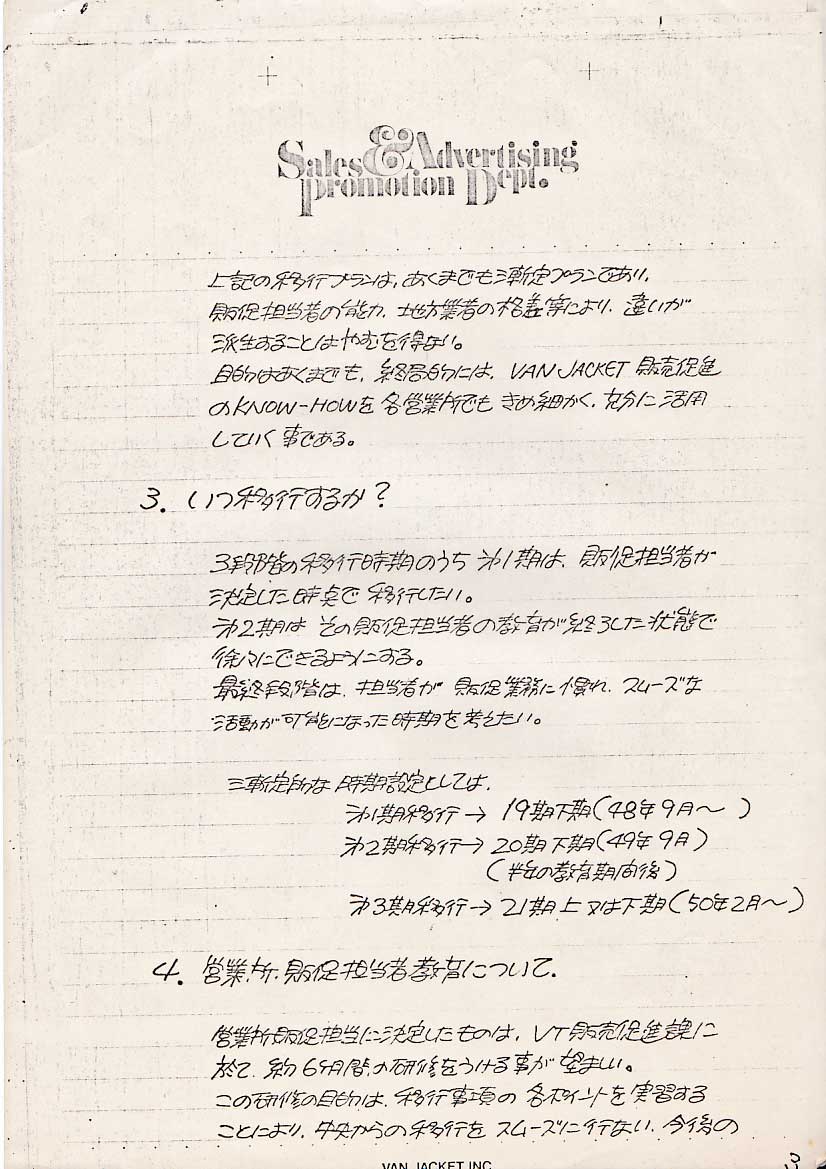 Sales & Advertising
promotion Dept.
上記の移行プランは、あくまでも漸定プランであり、
販促担当者の能力、地方業者の格差等により、違いが
派生することはやむを得ない。
目的はあくまでも、終局的には、VAN JACKET 販売促進
のKNOW-HOWを各営業所でもきめ細かく、充分に活用
していく事である。
3. いつ移行するか?
3段階の移行時期のうち 㐧1期は、販促担当者が
決定した時点で移行したい。
㐧2期は その販促担当者の教育が終了した状態で
徐々にできるようにする。
最終段階は、担当者が 販促業務に慣れ、スムーズな
活動が可能になった時期を考えたい。
漸定的な時期設定としては、
㐧1期移行→ 19期下期(48年9月～ )
㐧2期移行→ 20期下期(49年9月)
(半年の教育期間後)
㐧3期移行→ 21期上又は下期(50年2月～)
4. 営業所、販促担当者教育について、
営業所販促担当に決定したものは、VT販売促進課に
於て、約6ヶ月間の研修をうける事が望ましい。
この研修の目的は、移行事項の各ポイントを実習する
ことにより、中央からの移行をスムーズに行ない、今後の
VAN JACKET INC.
3